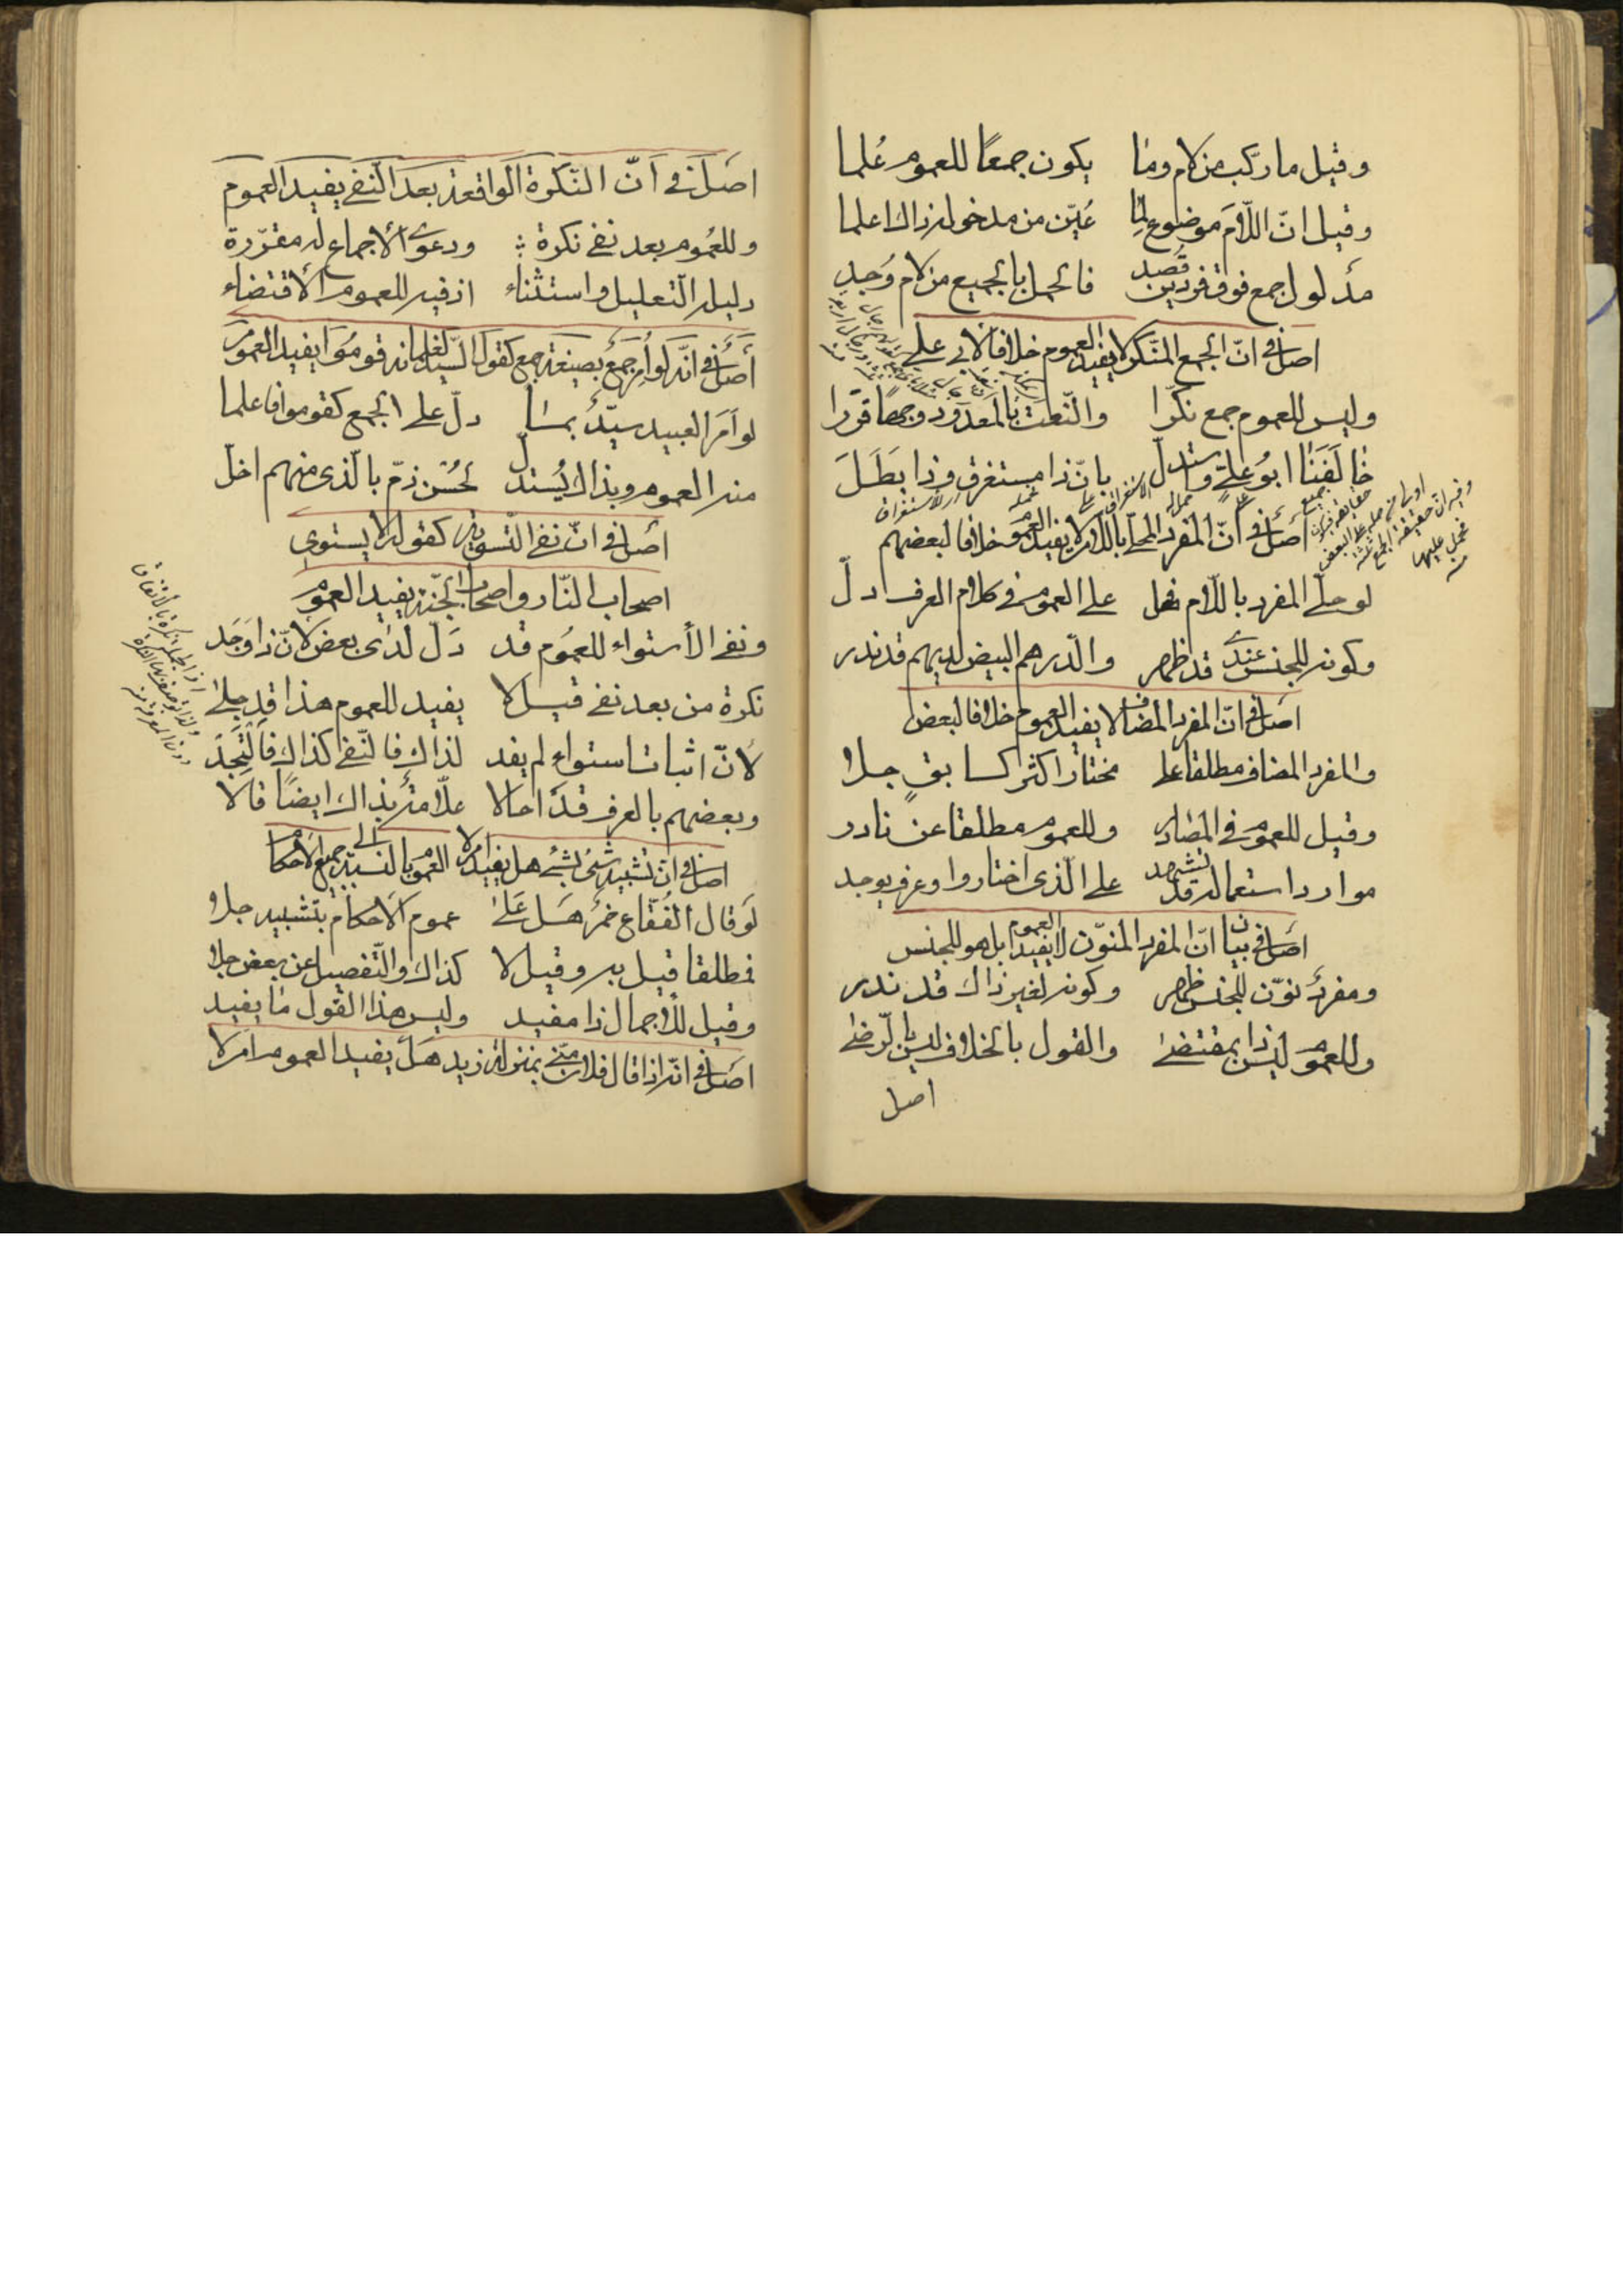 وقيل ما ركّب من لام وما يكون جمعًا للعموم عُلما
وقيل انّ اللّام موضوع لما عُيّن من مدخوله ذاك اعلما
مدلول جمع فوق فردين قُصد فالحمل بالجميع من لام وُجد
اصل فى انّ الجمع المنكر لا يفيد العموم خلافا لابى على
وليس للعموم جمع نكّرا والنّعت بالمعدود وجمعًا قرّرا
خالفنا ابو علىّ واستدلّ بانّ ذا مستغرق وذا بطل
اصل فى انّ المفرد المحلّى باللّام لا يفيد العموم خلافا لبعضهم
لو حلّى المفرد باللّام فهل على العموم فى كلام العرف دلّ
وكونه للجنس عندى قد ظهر والدّرهم البيض لديهم قد ندر
اصل فى انّ المفرد المضاف لا يفيد العموم خلافا لبعض
والمفرد المضاف مطلقا على مختار اكثر كسابق جلا
وقيل للعموم فى المصادر وللعموم مطلقا عن نادر
موارد استعماله قد تشهد على الّذى اختاروا وعرف يوجد
اصل فى بيان انّ المفرد المنوّن لا يفيد العموم بل هو للجنس
ومفرد نوّن للجنس ظهر وكونه لغير ذاك قد ندر
وللعموم ليس ذا بمقتضى والقول بالخلاف ليس بالرّضى
اصل
اصل فى انّ النّكرة الواقعة بعد النّفى يفيد العموم
وللعموم بعد نفى نكرة ودعوى الاجماع له مقرّرة
دليله التعليل واستثناء اذ فيه للعموم الاقتضاء
اصل فى انّه لو امر جمع بصيغة جمع كقول السّيد لغلمانه قوموا يفيد العموم
لو امر العبيد سيّد بما دلّ على الجمع كقوموا فاعلما
منه العموم وبذاك يُستدلّ لحُسن ذمّ بالّذى منهم اخلّ
اصل فى انّ نفى التّسوية كقوله لا يستوى
اصحاب النّار واصحاب الجنّة يفيد العموم
ونفى الاستواء للعموم قد دلّ لدى بعض لانّ ذا وَجد
نكرة من بعد نفى قيل لا يفيد للعموم هذا قد جلى
لانّ اثباتا استواء لم يفد لذاك فالنّفى كذاك فالتجد
وبعضهم بالعرف قد احالا علّامة بذاك ايضًا قالا
اصل فى انّ تشبيه شىء بشىء هل يفيد العموم بالنسبة الى جميع الاحكام ام لا
لو قال الفُقّاع خمر هل على عموم الاحكام بتشبيه جلا
فمطلقا قيل به وقيل لا كذاك والتّفصيل عن بعض جلا
وقيل للاجمال ذا مفيد وليس هذا القول ما يفيد
اصل فى انّه اذا قال فلان منّى بمنزلة زيد هل يفيد العموم ام لا